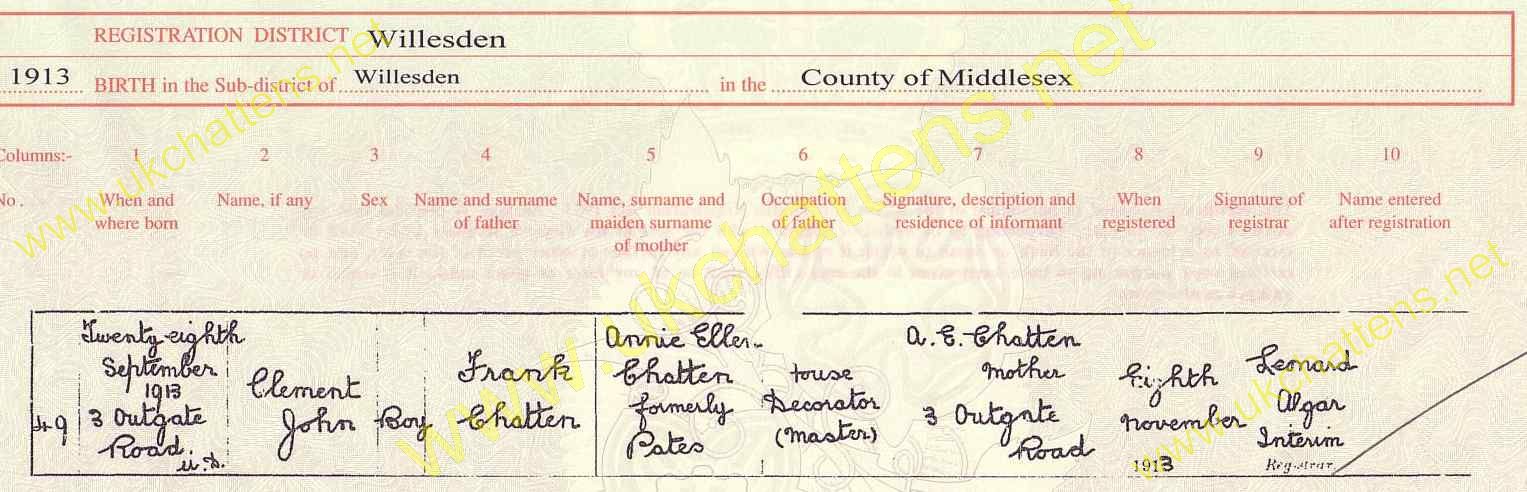 REGISTRATION DISTRICT Willesden
1913 BIRTH in the Sub-district of Willesden in the County of Middlesex
Columns:- 1 2 3 4 5 6 7 8 9 10
No. When and where born
Name, if any
Sex
Name and surname of father
Name, surname and maiden surname of mother
Occupation of father
Signature, description and residence of informant
When registered
Signature of registrar
Name entered after registration
49
Twenty-eighth
September
1913
3 Outgate
Road
U.D.
Clement
John
Boy
Frank
Chatten
Annie Ellen
Chatten
formerly
Pates
House
Decorator
(Master)
A. E. Chatten
Mother
3 Outgate
Road
Eighth
November
1913
Leonard
Algar
Interim
Registrar
www.ukchattens.net
www.ukchattens.net
www.ukchattens.net